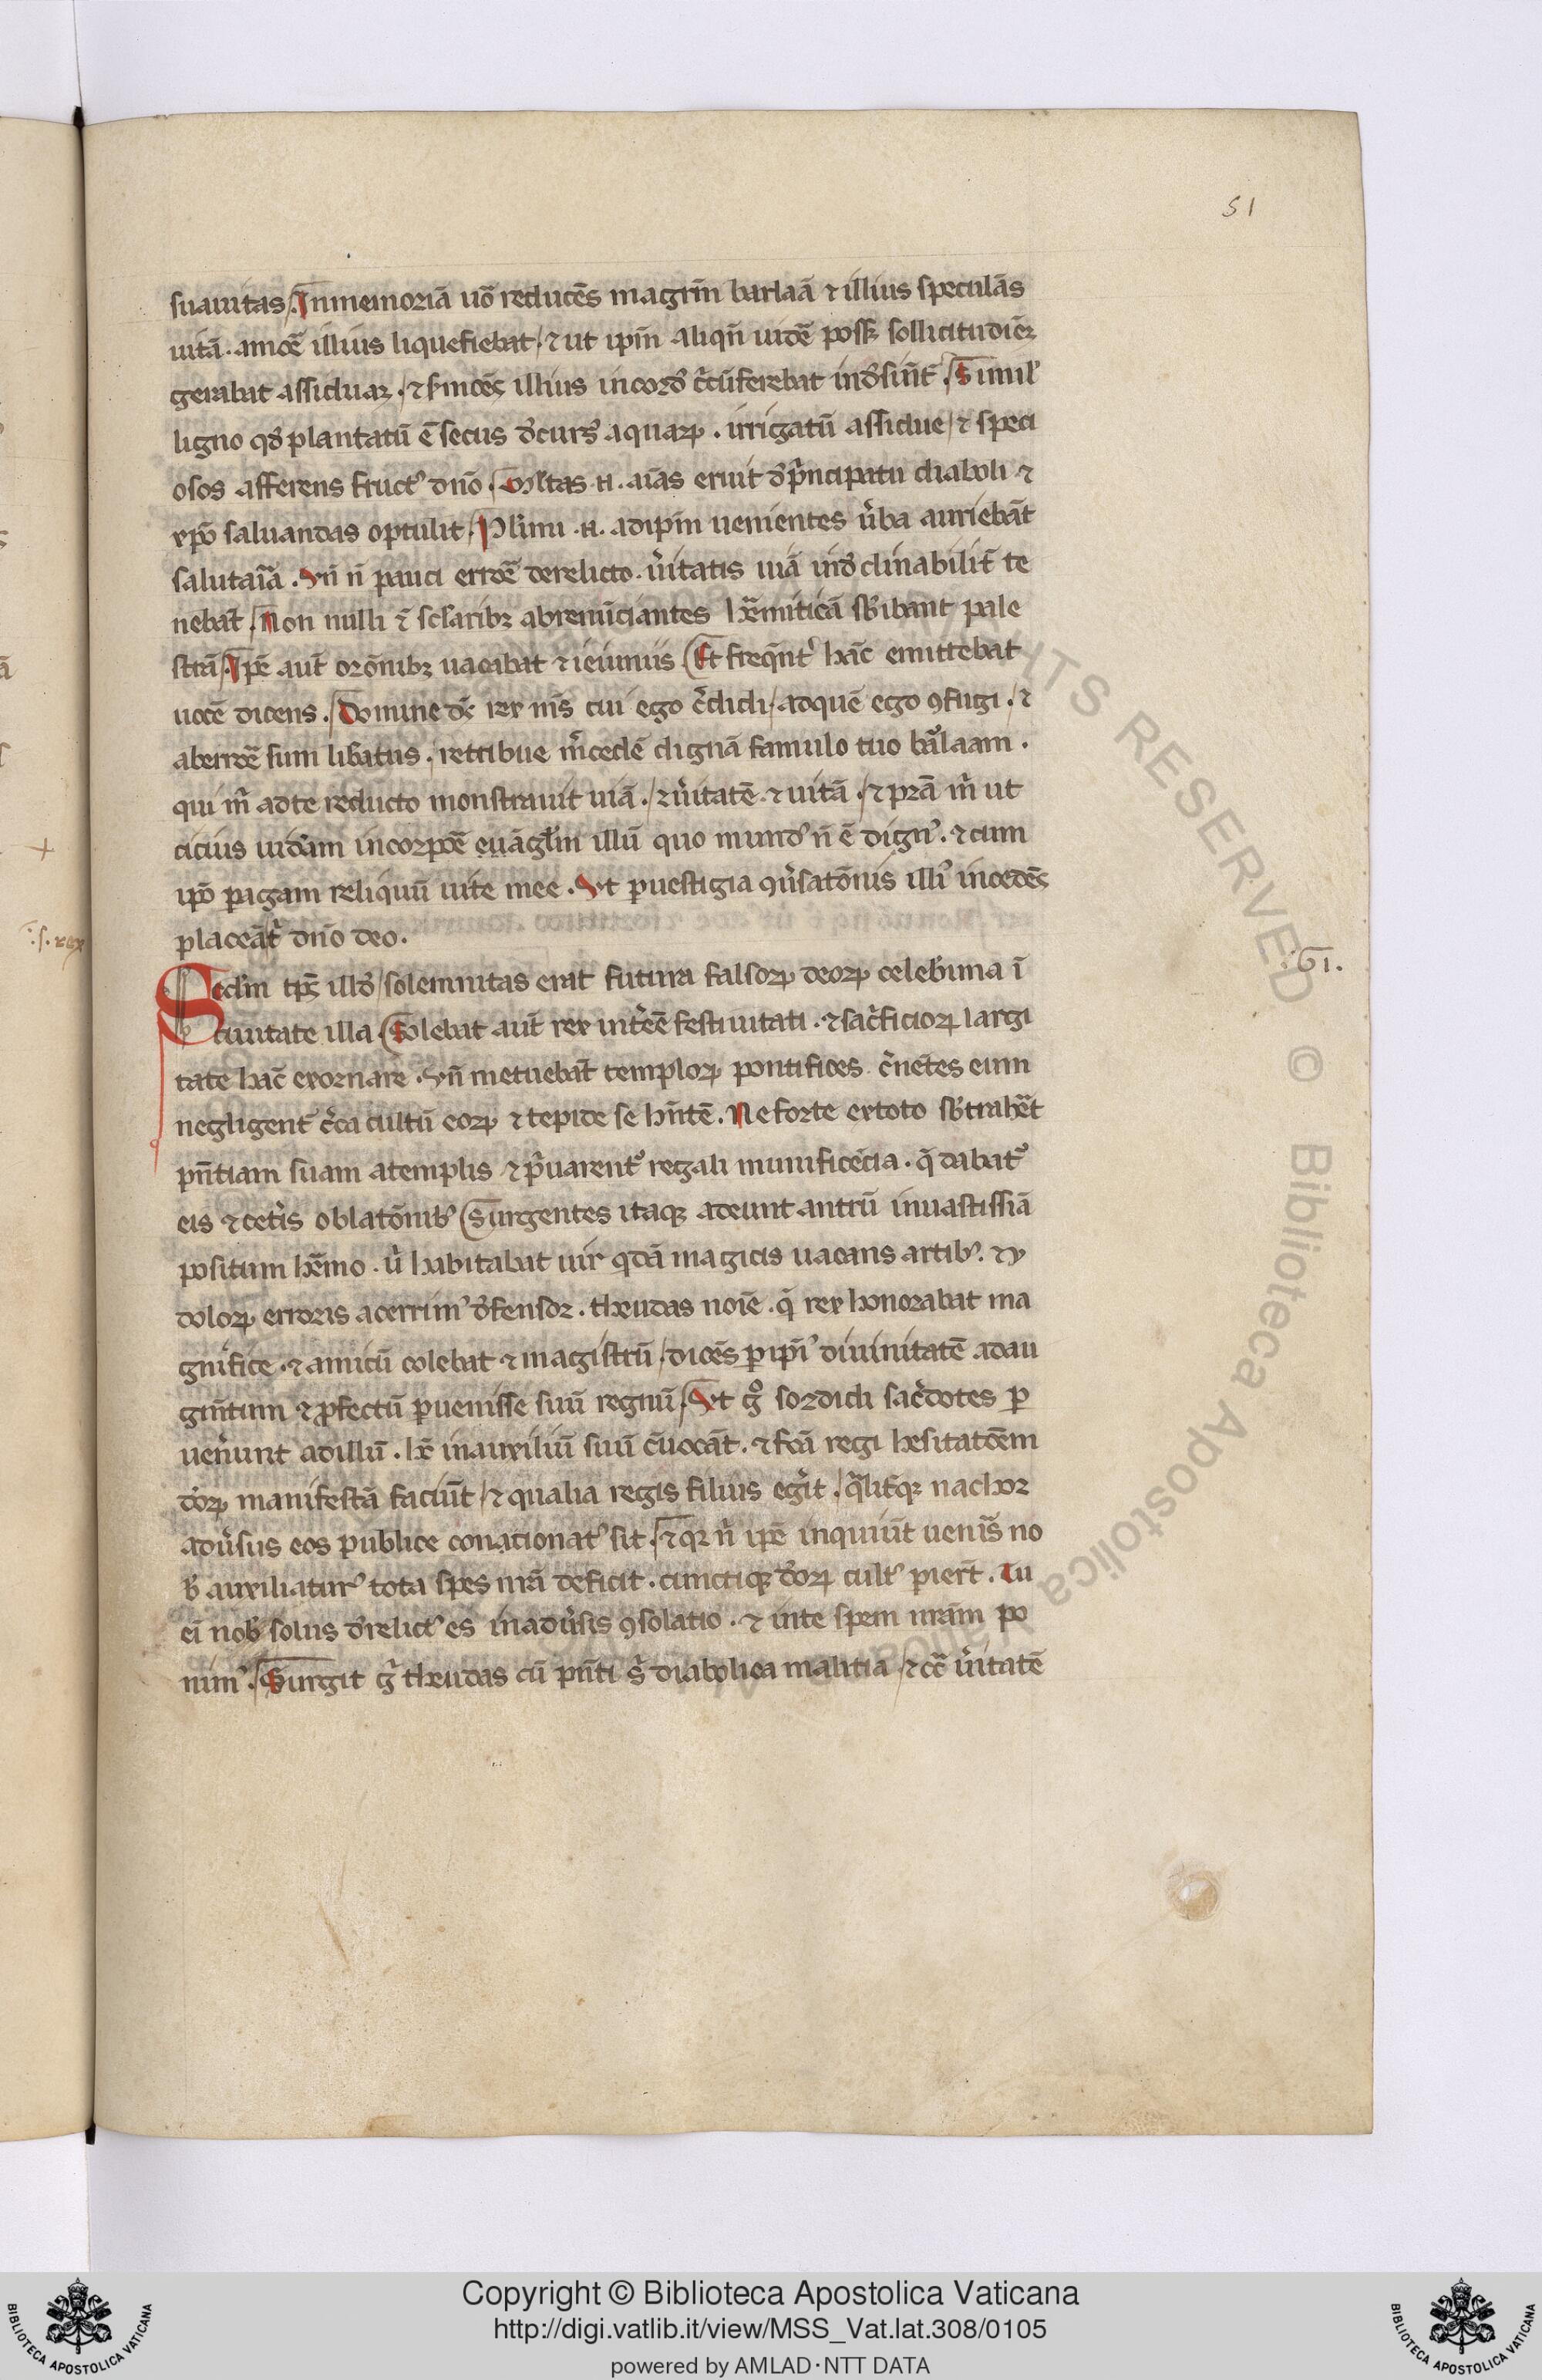 51
suauitas. In memoriā uō reducēs magr̄m barlaā ⁊ illius speculās
uitā. amoē illius liquefiebat / ⁊ ut ip̄m aliqn̄ uidē possꝫ sollicitudiēꝫ
gerabat assiduaꝫ. illius in cord̛ c̛cūferebat ind̛sin̄t. Simil̛
ligno qd̛ plantatū ē secus d̛curs᾽ aquaꝝ. irrigatū assidue / ⁊ speci
osos afferens fruct᾽ dn̄o. Mltas .n. aīas eruit d̛ p̛ncipatu diaboli ⁊
xp̄o saluandas optulit. Pl̛imi .n. ad ip̄m uenientes ưba auriebāt
salutaīa. Vn̄ n̄ pauci erroē derelicto. ưitatis uiā ind̛clinabilit̄ te
nebāt. Non nulli ⁊ sc̄laribꝫ abrenūciantes h̛emiticā sb̛ibant pale
strā. Ip̄e aut̄ or̄onibꝫ uacabat ⁊ ieiuniis. Et freq̄nt̛ hāc emittebat
uocē dicens. Domine d̄s rex m̄s cui ego c̛didi / ad quē ego ꝯfugi. ⁊
ab erroē sum lib̛atus. retribue m̛cedē dignā famulo tuo bar̛laam.
qui m̛ ad te reducto monstrauit uiā. / ⁊ ưitatē. ⁊ uitā. / ⁊ p̛stā m̛ ut
cicius uid̛am in corpoē euāgl̄m illū quo mund᾽ n̄ ē dign᾽. ⁊ cum
ip̄o pagam reliquū uite mee. Vt p uestigia ꝯưsatōnis illi᾽ incedēs
placeāt̛ dn̄o deo.
Sed in tp̄e ill̛o / solemnitas erat futura falsoꝝ deoꝝ celeb̛ima ī
ciuitate illa. Solebat aut̄ rex int̛ēē festiuitati. ⁊ sac̛ficioꝝ largi
tate hāc exornare. Vn̄ metuebāt temploꝝ pontifices c̛nētes eum
negligent̄ c̛ca cultū eoꝝ ⁊ tepide se hn̄tē. Ne forte ex toto sb̛trah̛et
pn̄tiam suam a templis ⁊ p̛uarent᾽ regali munificēcia. q̄ dabat᾽
eis ⁊ cet̛is oblatōnib᾽. Surgentes itaqꝫ adeunt antrū in uastissiā
positum h̛emo. ư habitabat uir qdā magicis uacans artib᾽. ⁊ y
doloꝝ erroris acerrim᾽ d̛fensor. theudas noīe. q̄ rex honorabat ma
gnifice. ⁊ amicū colebat ⁊ magistrū / dicēs p ip̄i᾽ diuinitatē ad au
gm̄tum ⁊ ꝓfectū puenisse suū regnū. Vt g̊ sordidi sac̛dotes p
uen̛unt ad illū. h̄c in auxiliū suū c̄uocāt. ⁊ fc̄ā regi hesitatōem
d̛oꝝ manifestā faciūt / ⁊ qualia regis filius eg̛it. / q̛lit̛qꝫ nachor
adưsus eos publice concionat᾽ sit. / ⁊ qꝫ n̄ ip̄e inquiūt uenis̄ no
b᾽ auxiliatur᾽ tota spes nr̄ā deficit. cunctiqꝫ d̛oꝝ cult᾽ pier̄t. Tu
ei nob᾽ solus d̛relict᾽ es in adưsis ꝯsolatio. ⁊ in te spem nr̄am po
nim᾽. Surgit g̛ theudas cū pn̄ti s̛ diabolica malitia / ⁊ cō̄ ưitatē
.s. rex
Copyright © Biblioteca Apostolica Vaticana
http://digi.vatlib.it/view/MSS_Vat.lat.308/0105
powered by AMLAD·NTT DATA
BIBLIOTECA APOSTOLICA VATICANA
BIBLIOTECA APOSTOLICA VATICANA